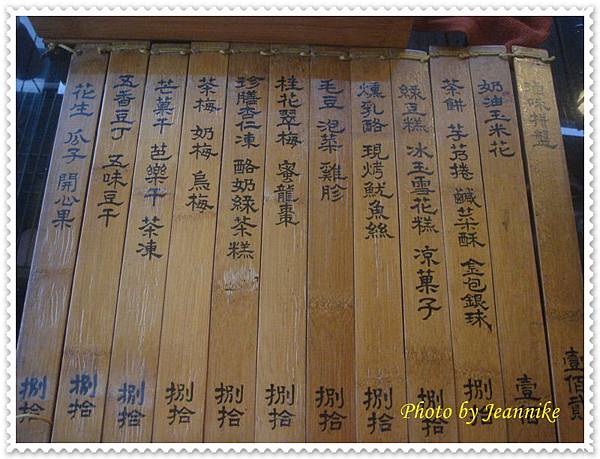 滷味拼盤 壹佰貳
奶油玉米花 壹佰
茶餅 鹹菜酥 金包銀珠 捌拾
綠豆糕 冰玉雪花糕 凉菓子 捌拾
燻乳酪 現烤魷魚絲 捌拾
毛豆 泡菜 雞胗 捌拾
桂花翠梅 蜜龍棗 捌拾
珍膳杏仁凍 酪奶綠茶糕 捌拾
茶梅 奶梅 烏梅 捌拾
芒菓干 芭樂干 茶凍 捌拾
五香豆丁 五味豆干 捌拾
花生 瓜子 開心果 捌拾
Photo by Jeannike